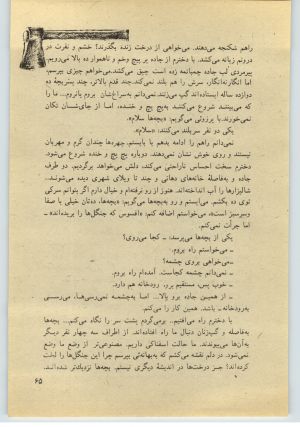 راهم شکنجه می‌دهند. می‌خواهی از درخت زنده بگذرند؟ خشم و نفرت در
درونم زبانه می‌کشد. با دخترم از جاده پر پیچ وخم و ناهموار ده بالا می‌رویم.
پیرمردی لب جاده چمباتمه زده است چپق می‌کشد. می‌خواهم چیزی بپرسم.
اما انگارنه‌انگار، سرش را هم بلند نمی‌کند. چند قدم بالاتر، چند پسربچهٔ ده
دوازده ساله ایستاده‌اند گپ می‌زنند. نمی‌دانم به‌سراغشان بروم یانروم... ما را
که می‌بینند شروع می‌کنند به‌پچ پچ و خنده، اما از جای‌شان تکان
نمی‌خورند. با پرروئی می‌گویم: «بچه‌ها سلام».
یکی دو نفر سربلند می‌کنند: «سلام».
نمی‌دانم راهم را ادامه بدهم یا بایستم. چهرهها چندان گرم و مهربان
نیستند و روی خوش نشان نمی‌دهند. دوباره پچ پچ و خنده شروع می‌شود.
دخترم سخت احساس ناراحتی می‌کند، دلش می‌خواهد برگردیم. دو طرف
جاده و به‌فاصله خانه‌های دهاتی و چند تا ویلای شهری دیده می‌شوند...
شالیزارها را آب انداخته‌اند. هنوز از رو نرفته‌ام و خیال دارم اگر بتوانم سرکی
توی ده بکشم. می‌ایستم و رو به‌بچه‌ها می‌گویم: «بچه‌ها، ده‌تان خیلی با صفا
وسرسبز است»، می‌خواستم اضافه کنم: «افسوس که جنگل‌ها را بریده‌اند» ـ
اما جرأت نمی‌کنم.
یکی از بچه‌ها می‌پرسد: ـ کجا می‌روی؟
ـ می‌خواستم راه بروم.
ـ می‌خواهی بروی چشمه؟
ـ نمی‌دانم چشمه کجاست. آمده‌ام راه بروم.
ـ خوب پس، مستقیم برو، رودخانه هم دارد.
ـ از همین جاده برو بالا... اما به‌چشمه نمی‌رسی‌ها، می‌رسی
به‌رودخانه ـ باشد. همین کار را می‌کنم.
با دخترم راه می‌افتیم... برمی‌گردم پشت سر را نگاه می‌کنم... بچه‌ها
به‌فاصله و گپ‌زنان دنبال ما راه افتاده‌اند. از اطراف سه چهار نفر دیگر
به‌آن‌ها می‌پیوندند. ما حالت اسفناکی داریم. مصنوعی‌تر از وضع ما وضع
نمی‌شود. در دلم نقشه می‌کشم که به‌بهانه‌ئی بپرسم چرا این جنگل‌ها را لخت
کرده‌اند؟ جز درخت‌ها در اندیشهٔ دیگری نیستم. بچه‌ها نزدیک‌تر شده‌اند.
۶۵